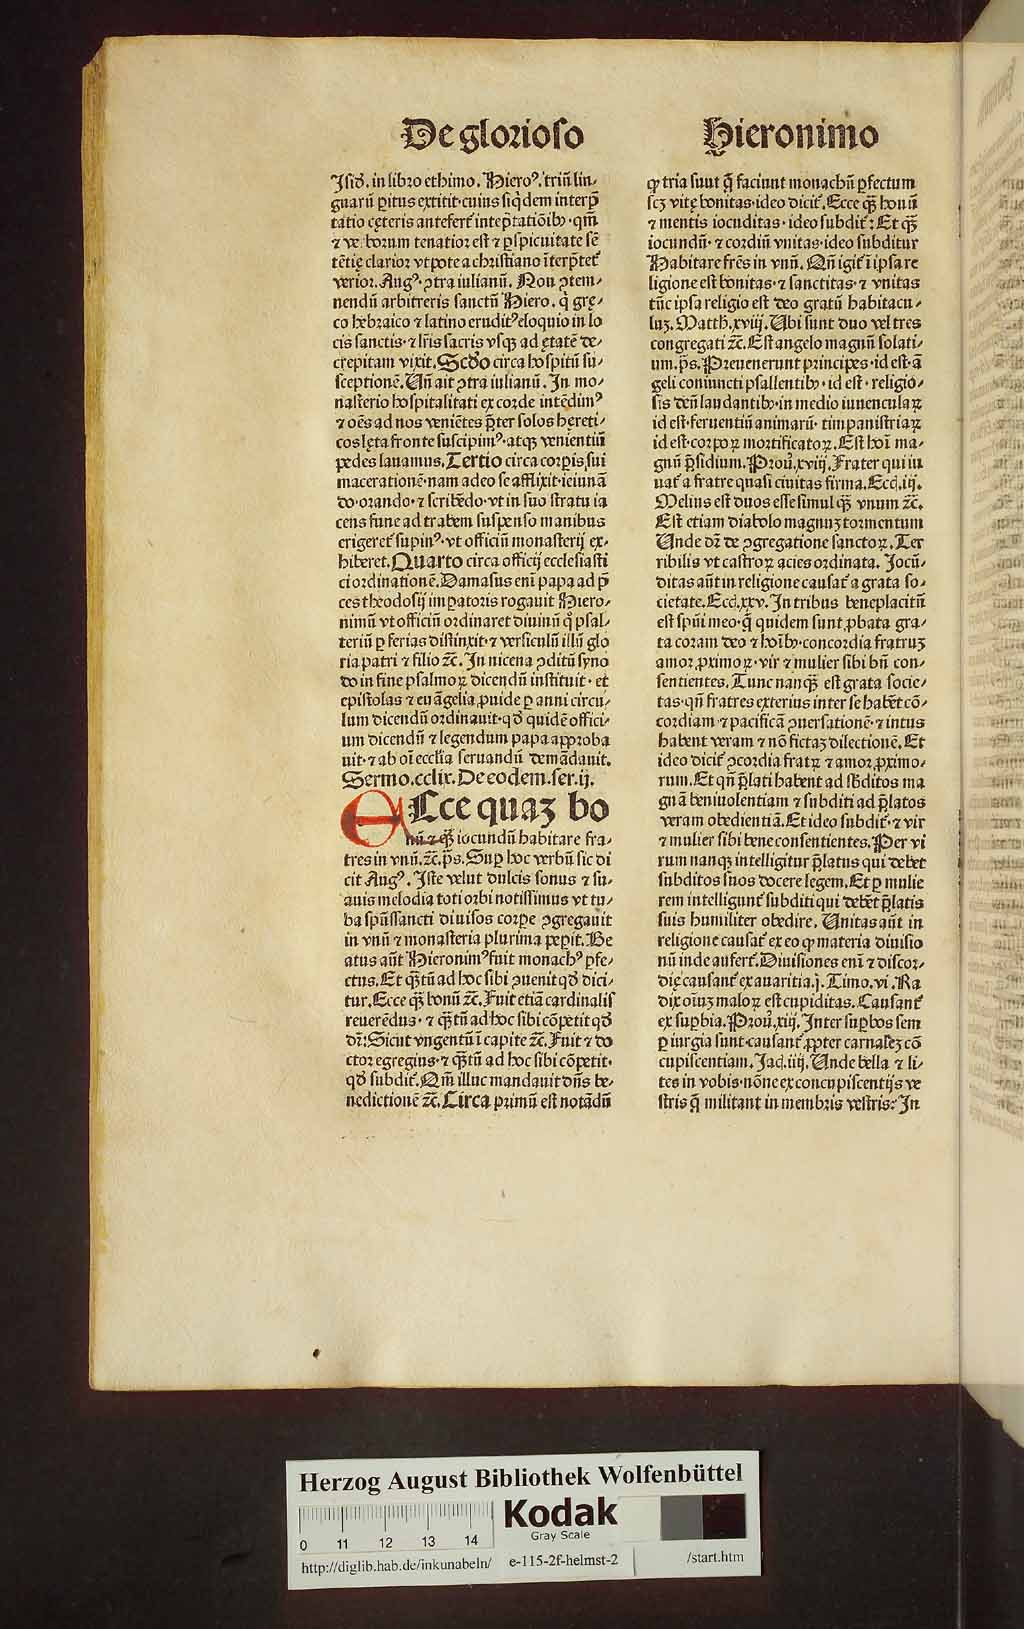 De glorioso
Hieronimo
Isid̄. in libro ethimo. Hieroꝰ. triū lin-
guarū ꝑitus extitit·cuius siq̇dem interp̄
tatio cęteris anteferť intep̄tatiōibꝰ·qm̄
⁊ ve borum tenatior est ⁊ ꝑspicuitate sē
tētię clarior vtpote a christiano īterp̄teť
verior. Augꝰ. ꝯtra iulianū. Non ꝯtem-
nendū arbitreris sanctū Hiero. q̇ grę-
co hebraico ⁊ latino erudit⁹ eloquio in lo
cis sanctis·⁊ lr̄is sacris vsqꝫ ad ętatē de-
crepitam vixit. Scd̄o circa hospitū su-
sceptionē. Uñ ait ꝯtra iulianū. In mo-
nasterio hospitalitati ex corde intēdim⁹
⁊ oēs ad nos veniētes p̄ter solos hęreti-
cos lęta fronte suscipim⁹·atqꝫ venientiū
pedes lauamus. Tertio circa corꝑis sui
macerationē·nam adeo se afflixit·ieiunā
do·orando·⁊ scribēdo·vt in suo stratu ia
cens fune ad trabem suspenso manibus
erigereť supin⁹·vt officiū monasterij ex-
hiberet. Quarto circa officij ecclesiasti
ci ordinationē. Damasus enī papa ad p̄
ces theodosij imꝑatoris rogauit Hiero-
nimū vt officiū ordinaret diuinū q̇ psal-
teriū ꝑ ferias distinxit·⁊ versiculū illū glo
ria patri ⁊ filio ⁊c̄. In nicena ꝯditū syno
do in fine psalmoꝝ dicendū instituit· et
epistolas ⁊ euāgelia ꝓuide ꝑ anni circu-
lum dicendū ordinauit·qd̄ quidē offici-
um dicendū ⁊ legendum papa approba
uit·⁊ ab oī ecclīa seruandū demādauit.
Sermo.cclix. De eodem.ser.ij.
ELce quaꝫ bo
nū ⁊ qꝫ̄ iocundū habitare fra-
tres in vnū.⁊c̄.ps̄. Suꝑ hoc verbū sic di
cit Augꝰ. Iste velut dulcis sonus ⁊ su-
auis melodia toti orbi notissimus vt tu-
ba spūssancti diuisos corꝑe ꝯgregauit
in vnū ⁊ monasteria plurima peꝑit. Be
atus aūt Hieronim⁹ fuit monach⁹ ꝑfe-
ctus. Et qꝫ̄tū ad hoc sibi ꝯuenit qd̄ dici-
tur. Ecce qꝫ̄ bonū ⁊c̄. Fuit etiā cardinalis
reuerēdus·⁊ qꝫ̄tū ad hoc sibi cōpetit qd̄
dr̄: Sicut vngentū ī capite ⁊c̄. Fuit ⁊ do
ctor egregius·⁊ qꝫ̄tū ad hoc sibi cōpetit·
qd̄ subdiť. Qm̄ illuc mandauit dn̄s be-
nedictionē ⁊c̄. Circa primū est notādū
ꝙ tria sunt q̄ faciunt monachū ꝑfectum
scꝫ vitę bonitas·ideo diciť. Ecce qꝫ̄ bonū
⁊ mentis iocuditas·ideo subdiť: Et qꝫ̄
iocundū·⁊ cordiū vnitas·ideo subditur
Habitare frēs in vnū. Qñ igiť ī ipsa re
ligione est bonitas·⁊ sanctitas·⁊ vnitas
tūc ipsa religio est deo gratū habitacu-
luꝫ. Matth.xviij. Ubi sunt duo vel tres
congregati ⁊c̄. Est angelo magnū solati-
um.ps̄. Preuenerunt principes·id est·ā
geli coniuncti psallentibꝰ·id est· religio-
sis deū laudantibꝰ·in medio iuuenculaꝝ
id est·feruentiū animarū· timpanistriaꝝ
id est·corpoꝝ mortificatoꝝ. Est hoī ma-
gnū p̄sidium. Prou̇.xviij. Frater qui iu
uať a fratre quasi ciuitas firma. Eccl̄.iij.
Melius est duos esse simul qꝫ̄ vnum ⁊c̄.
Est etiam diabolo magnuꝫ tormentum
Unde dr̄ de ꝯgregatione sanctoꝝ. Ter
ribilis vt castroꝝ acies ordinata. Iocū-
ditas aūt in religione causať a grata so-
cietate. Eccl̄.xxv. In tribus beneplacitū
est spūi meo·q̄ quidem sunt ꝓbata gra-
ta coram deo ⁊ hoībꝰ·concordia fratruꝫ
amor ꝓximoꝝ·vir ⁊ mulier sibi bñ con-
sentientes. Tunc nanqꝫ̄ est grata socie-
tas·qñ fratres exterius inter se habēt cō-
cordiam ⁊ pacificā ꝯuersationē·⁊ intus
habent veram ⁊ nō fictaꝫ dilectionē. Et
ideo diciť ꝯcordia fratꝝ ⁊ amor ꝓximo-
rum. Et qñ p̄lati habent ad sb̄ditos ma
gnā beniuolentiam ⁊ subditi ad p̄latos
veram obedientiā. Et ideo subdiť·⁊ vir
⁊ mulier sibi bene consentientes. Per vi
rum nanqꝫ intelligitur p̄latus qui debet
subditos suos docere legem. Et ꝑ mulie
rem intelligunť subditi qui debēt p̄latis
suis humiliter obedire. Unitas aūt in
religione causať ex eo ꝙ materia diuisio
nū inde auferť. Diuisiones enī ⁊ discor-
dię causanť ex auaritia.j. Timo.vi. Ra
dix oīuꝫ maloꝝ est cupiditas. Causanť
ex suꝑbia. Prou̇.xiij. Inter suꝑbos sem
ꝑ iurgia sunt·causanť ꝓpter carnaleꝫ cō
cupiscentiam. Jaq̄.iiij. Unde bella ⁊ li-
tes in vobis·nōne ex concupiscentijs ve
stris q̄ militant in membris vestris: In
Herzog August Bibliothek Wolfenbüttel
Kodak
Gray Scale
0 11 12 13 14
http://diglib.hab.de/inkunabeln/ e-115-2f-helmst-2 /start.htm